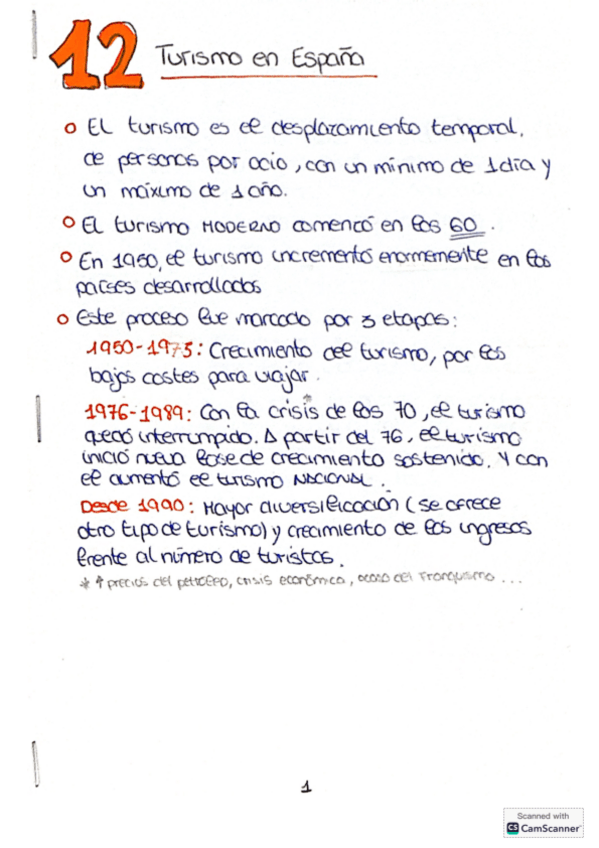 12 Turismo en España
El turismo es el desplazamiento temporal,
de personas por ocio, con un mínimo de 1 día y
un máximo de 1 año.
El turismo MODERNO comenzó en los 60.
En 1950, el turismo incrementó enormemente en los
países desarrollados
Este proceso fue marcado por 3 etapas:
1950-1975: Crecimiento del turismo, por los
bajos costes para viajar.
1976-1989: Con la crisis de los 70*, el turismo
quedó interrumpido. A partir del 76, el turismo
inició nueva fase de crecimiento sostenido. Y con
él aumentó el turismo NACIONAL.
Desde 1990: Mayor diversificación (se ofrece
otro tipo de turismo) y crecimiento de los ingresos
frente al número de turistas.
* ↑ precios del petróleo, crisis económica, ocaso del Franquismo ...
1
Scanned with
CS CamScanner